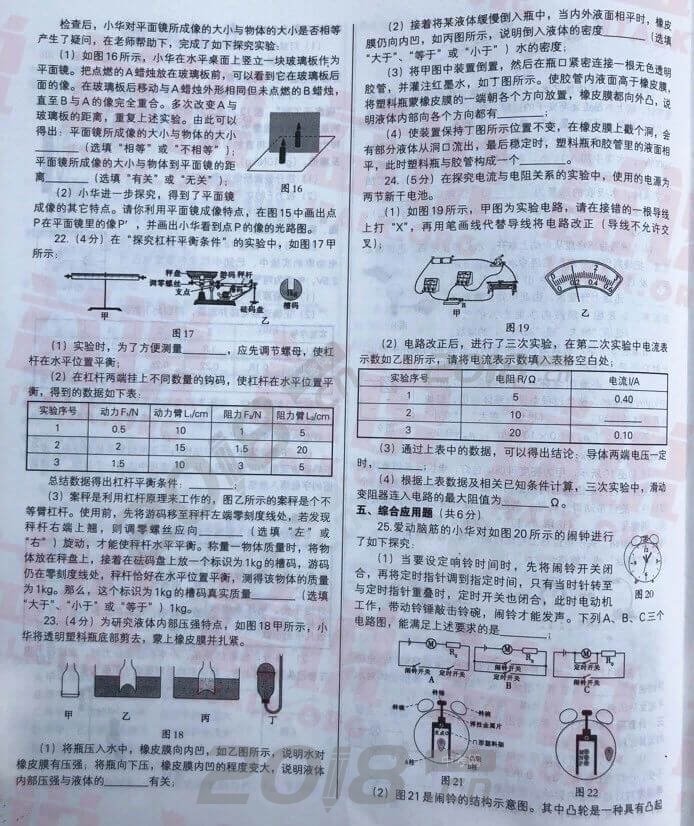 检查后，小华对平面镜所成像的大小与物体的大小是否相等
产生了疑问，在老师帮助下，完成了如下探究实验：
（1）如图16所示，小华在水平桌面上竖立一块玻璃板作为
平面镜。把点燃的A蜡烛放在玻璃板前，可以看到它在玻璃板后
面的像。在玻璃板后移动与A蜡烛外形相同但未点燃的B蜡烛，
直至B与A的像完全重合。多次改变A与
玻璃板的距离，重复上述实验。由此可以
得出：平面镜所成像的大小与物体的大小
______（选填“相等”或“不相等”）；
平面镜所成像的大小与物体到平面镜的距
离______（选填“有关”或“无关”）；
图16
（2）小华进一步探究，得到了平面镜
成像的其它特点。请你利用平面镜成像特点，在图15中画出点
P在平面镜里的像P'，并画出小华看到点P的像的光路图。
22.（4分）在“探究杠杆平衡条件”的实验中，如图17甲
所示：
秤盘 游码 秤杆
调零螺丝
支点
砝码盘
槽码
甲 乙
图17
（1）实验时，为了方便测量______，应先调节螺母，使杠
杆在水平位置平衡；
（2）在杠杆两端挂上不同数量的钩码，使杠杆在水平位置平
衡，得到的数据如下表：
实验序号 动力F₁/N 动力臂L₁/cm 阻力F₂/N 阻力臂L₂/cm
1 0.5 10 1 5
2 2 15 1.5 20
3 1.5 10 3 5
总结数据得出杠杆平衡条件：______；
（3）案秤是利用杠杆原理来工作的，图乙所示的案秤是个不
等臂杠杆。使用前，先将游码移至秤杆左端零刻度线处，若发现
秤杆右端上翘，则调零螺丝应向______（选填“左”或
“右”）旋动，才能使秤杆水平平衡。称量一物体质量时，将物
体放在秤盘上，接着在砝码盘上放一个标识为1kg的槽码，游码
仍在零刻度线处，秤杆恰好在水平位置平衡，测得该物体的质量
为1kg。那么，这个标识为1kg的槽码真实质量______（选填
“大于”、“小于”或“等于”）1kg。
23.（4分）为研究液体内部压强特点，如图18甲所示，小
华将透明塑料瓶底部剪去，蒙上橡皮膜并扎紧。
甲 乙 丙 丁
图18
（1）将瓶压入水中，橡皮膜向内凹，如乙图所示，说明水对
橡皮膜有压强；将瓶向下压，橡皮膜内凹的程度变大，说明液体
内部压强与液体的______有关；
（2）接着将某液体缓慢倒入瓶中，当内外液面相平时，橡皮
膜仍向内凹，如丙图所示，说明倒入液体的密度______（选填
“大于”、“等于”或“小于”）水的密度；
（3）将甲图中装置倒置，然后在瓶口紧密连接一根无色透明
胶管，并灌注红墨水，如丁图所示。使胶管内液面高于橡皮膜，
将塑料瓶蒙橡皮膜的一端朝各个方向放置，橡皮膜都向外凸，说
明液体内部向各个方向都有______；
（4）使装置保持丁图所示位置不变，在橡皮膜上戳个洞，会
有部分液体从洞口流出，最后稳定时，塑料瓶和胶管里的液面相
平，此时塑料瓶与胶管构成一个______。
24.（5分）在探究电流与电阻关系的实验中，使用的电源为
两节新干电池。
（1）如图19所示，甲图为实验电路，请在接错的一根导线
上打“X”，再用笔画线代替导线将电路改正（导线不允许交
叉）；
甲 乙
图19
（2）电路改正后，进行了三次实验，在第二次实验中电流表
示数如乙图所示，请将电流表示数填入表格空白处；
实验序号 电阻R/Ω 电流I/A
1 5 0.40
2 10 ______
3 20 0.10
（3）通过上表中的数据，可以得出结论：导体两端电压一定
时，______；
（4）根据上表数据及相关已知条件计算，三次实验中，滑动
变阻器连入电路的最大阻值为______Ω。
五、综合应用题（共6分）
25.爱动脑筋的小华对如图20所示的闹钟进行
了如下探究：
图20
（1）当要设定响铃时间时，先将闹铃开关闭
合，再将定时指针调到指定时间，只有当时针转至
与定时指针重叠时，定时开关也闭合，此时电动机
工作，带动铃锤敲击铃碗，闹铃才能发声。下列A、B、C三个
电路图，能满足上述要求的是______；
M R₀ M R₀ M R₀
闹铃开关 定时开关 闹铃开关 定时开关
A B C
铃锤
铃碗 铃碗
弹性金属片
凸轮
A柱
图21 图22
（2）图21是闹铃的结构示意图。其中凸轮是一种具有凸起